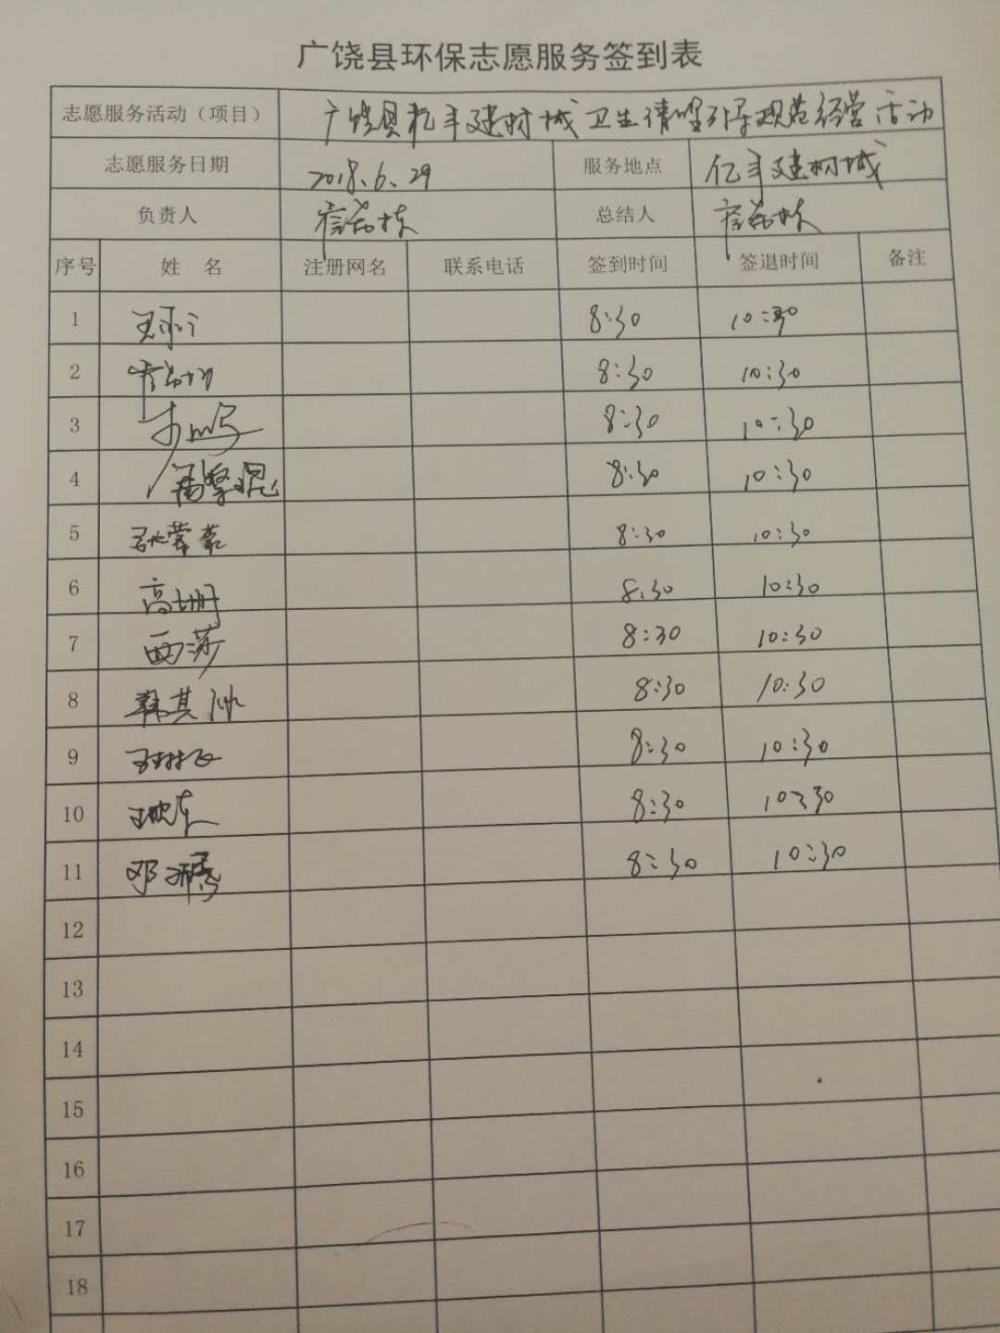 广饶县环保志愿服务签到表
志愿服务活动（项目） 广饶县亿丰建材城卫生清理引导规范经营活动
志愿服务日期 2018.6.29 服务地点 亿丰建材城
负责人 总结人
序号 姓 名 注册网名 联系电话 签到时间 签退时间 备注
1 8:30 10:30
2 8:30 10:30
3 8:30 10:30
4 8:30 10:30
5 8:30 10:30
6 高珊 8:30 10:30
7 西莎 8:30 10:30
8 韩其 8:30 10:30
9 8:30 10:30
10 8:30 10:30
11 邓 8:30 10:30
12
13
14
15
16
17
18